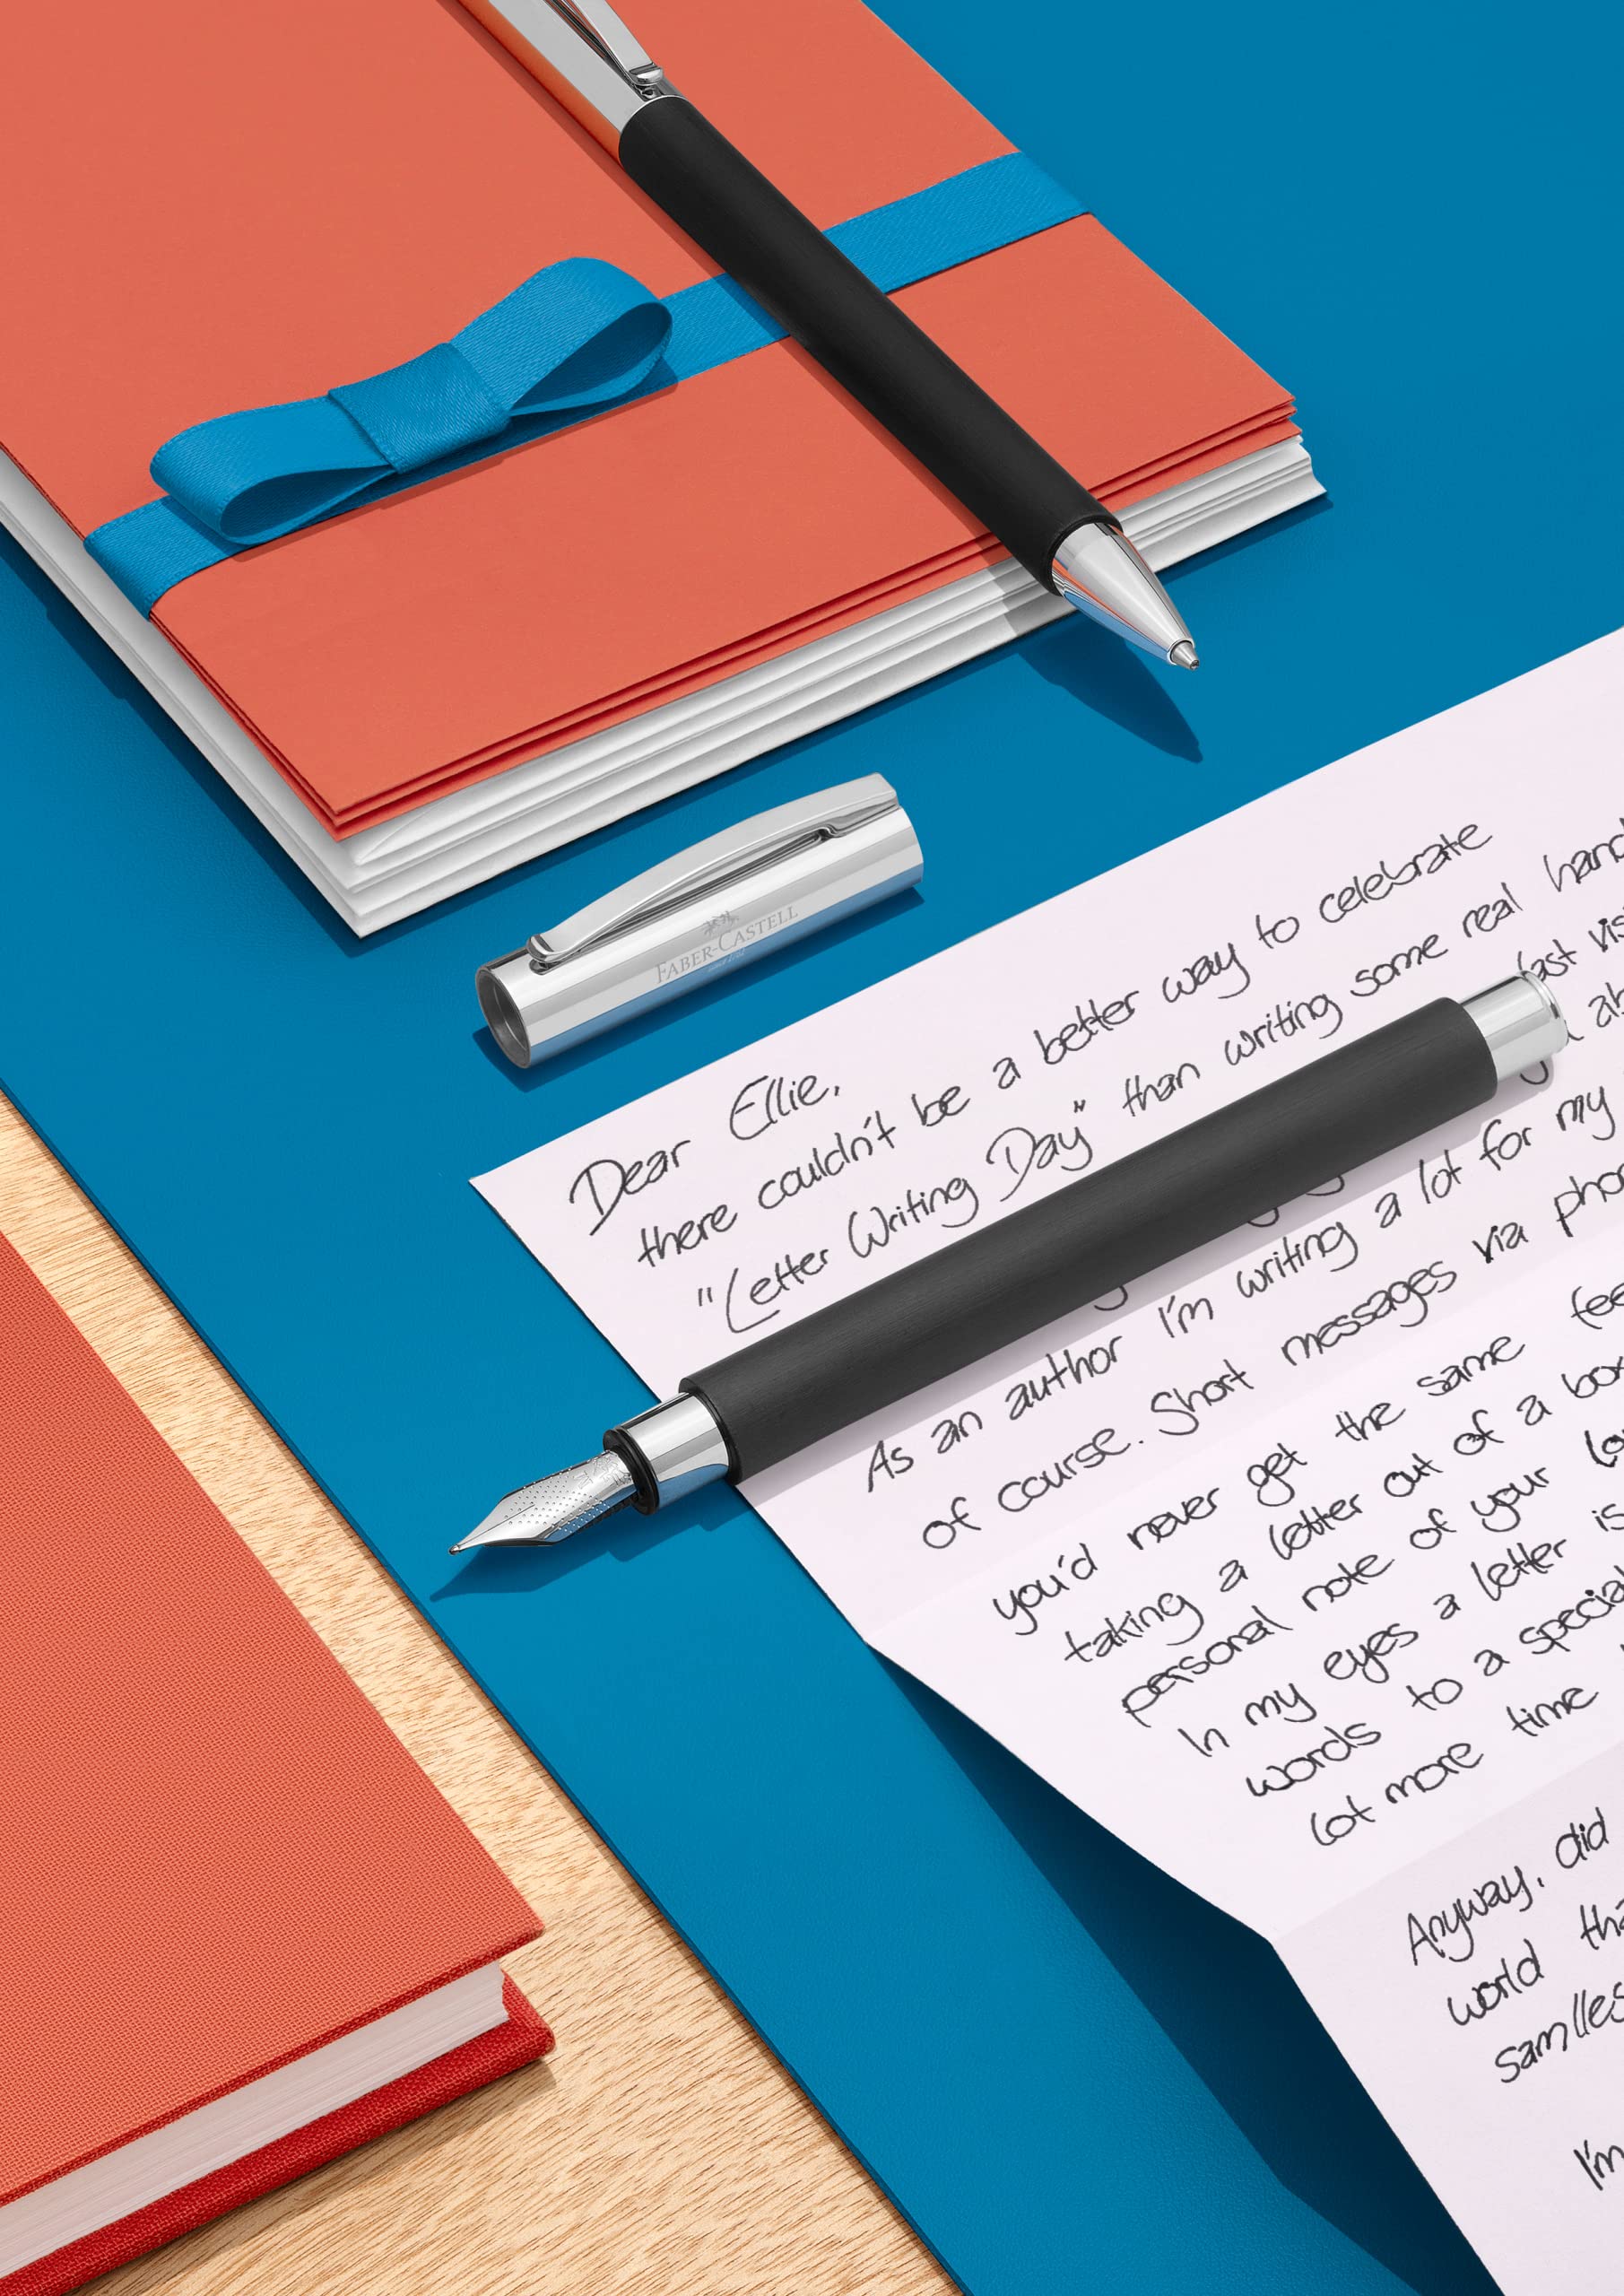 FABER-CASTELL
Dear Ellie,
there couldn't be a better way to celebrate
"Letter Writing Day" than writing some real
last
As an author I'm writing a lot for my
of course. Short messages via
you'd never get the same
taking a letter out of a box
personal note of your
In my eyes a letter is
words to a special
lot more time
Anyway, did
world
I'm